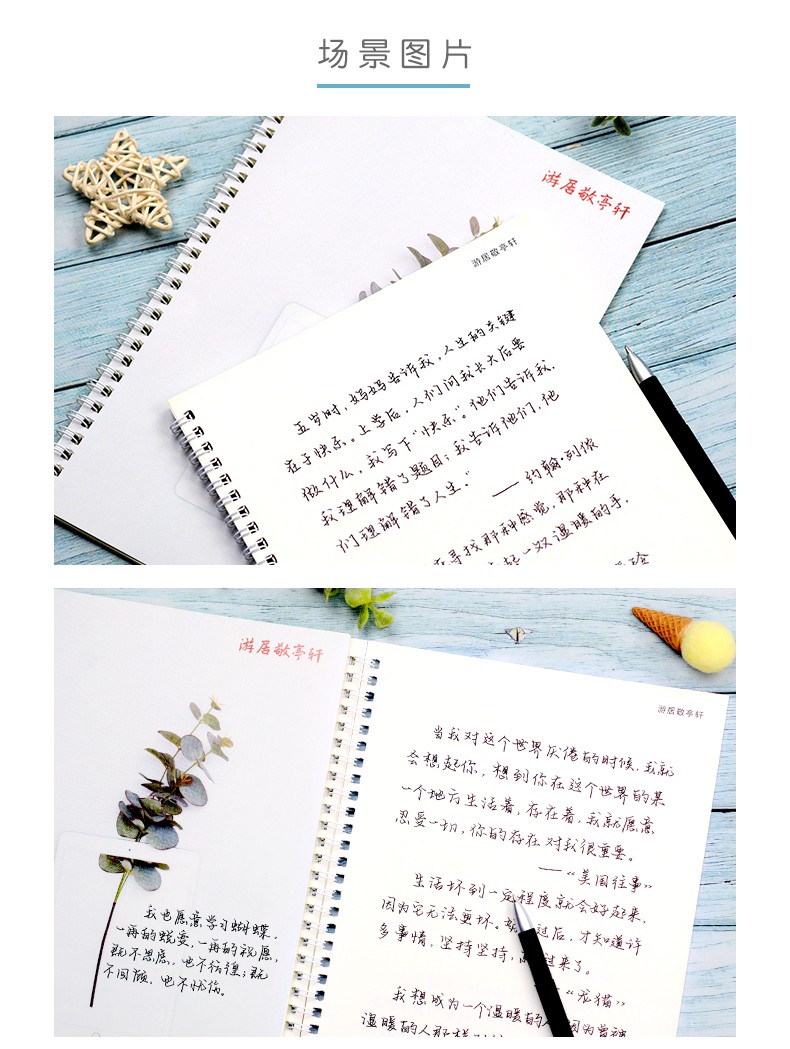 场景图片
游居敬亭轩
游居敬亭轩
五岁时，妈妈告诉我，人生的关键
在于快乐。上学后，人们问我长大后要
做什么，我写下“快乐”。他们告诉我，
我理解错了题目；我告诉他们，他
们理解错了人生。”
——约翰·列侬
在寻找那种感觉，那种在
一双温暖的手，
游居敬亭轩
游居敬亭轩
当我对这个世界厌倦的时候，我就
会想起你，想到你在这个世界的某
一个地方生活着，存在着，我就愿意
忍受一切，你的存在对我很重要。
——“美国往事”
生活坏到一定程度就会好起来，
因为它无法更坏。过后，才知道许
多事情，坚持坚持，过来了。
“龙猫”
我想成为一个温暖的人，因为曾被
温暖的人那样
我也愿意学习蝴蝶，
一再的蜕变，一再的祝愿，
既不思虑，也不彷徨；既
不回顾，也不忧伤。